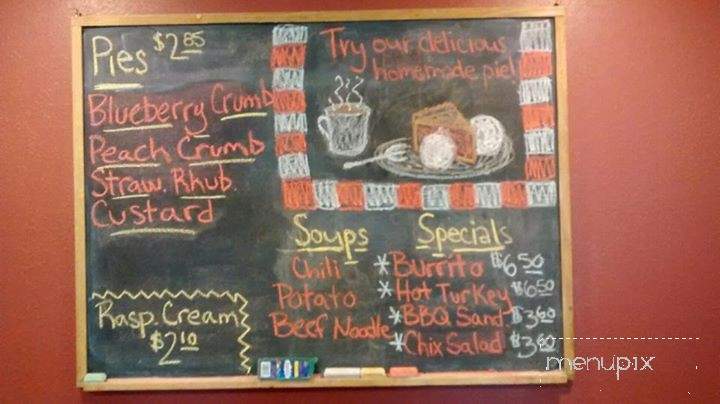 Pies $2.85
Blueberry Crumb
Peach Crumb
Straw. Rhub.
Custard
Rasp. Cream
$2.10
Try our delicious
homemade pie!
Soups
Chili
Potato
Beef Noodle
Specials
*Burrito $6.50
*Hot Turkey $6.50
*BBQ Sand. $3.60
*Chix Salad $3.60
menupix